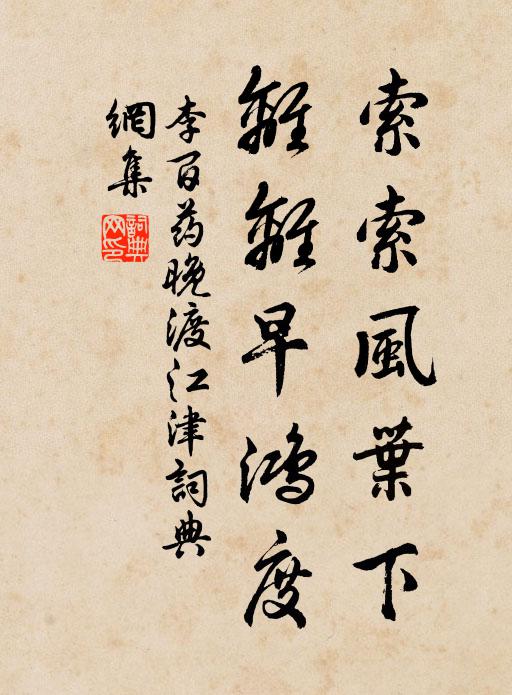 索索風葉下
離離早鴻度
李百药晚渡江津詞典
網集
詞典
网印